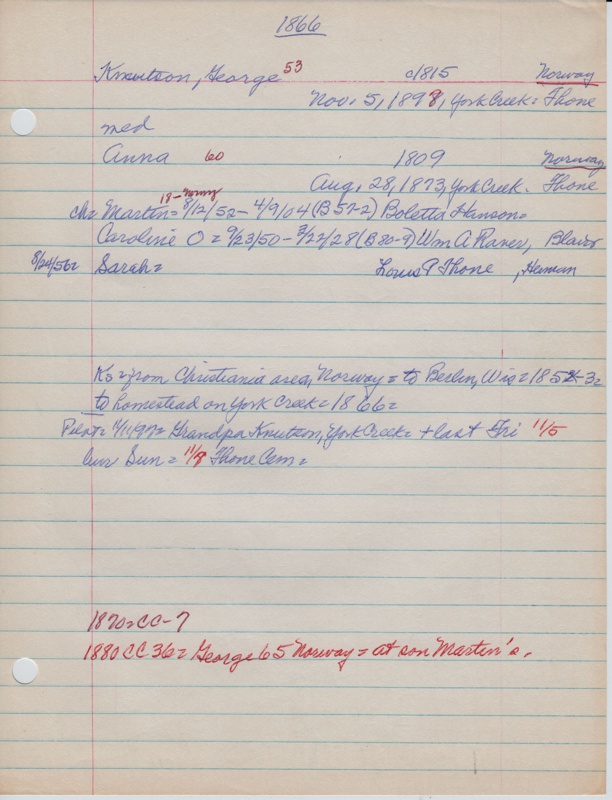 1866
Knutson, George 53 c1815 Norway
Nov. 5, 1898, York Creek = Thone
med
Anna 60 1809 Norway
Aug. 28, 1873, York Creek. Thone
18 - Norway
ch = Martin = 8/12/52 - 4/9/04 (B57-2) Boletta Hanson =
Caroline O = 9/23/50 - 3/22/28 (B80-9) Wm A Raner, Blair
8/24/56 = Sarah = Louis P Thone, Heman
Ks = from Christiania area, Norway = to Berlin, Wis = 1852-3 =
to homestead on York Creek = 1866 =
Pilot = 11/11/97 = Grandpa Knutson, York Creek = + last Fri 11/5
bur Sun = 11/7 Thone Cem =
1870 = CC-7
1880 CC 36 = George 65 Norway = at son Martin's.